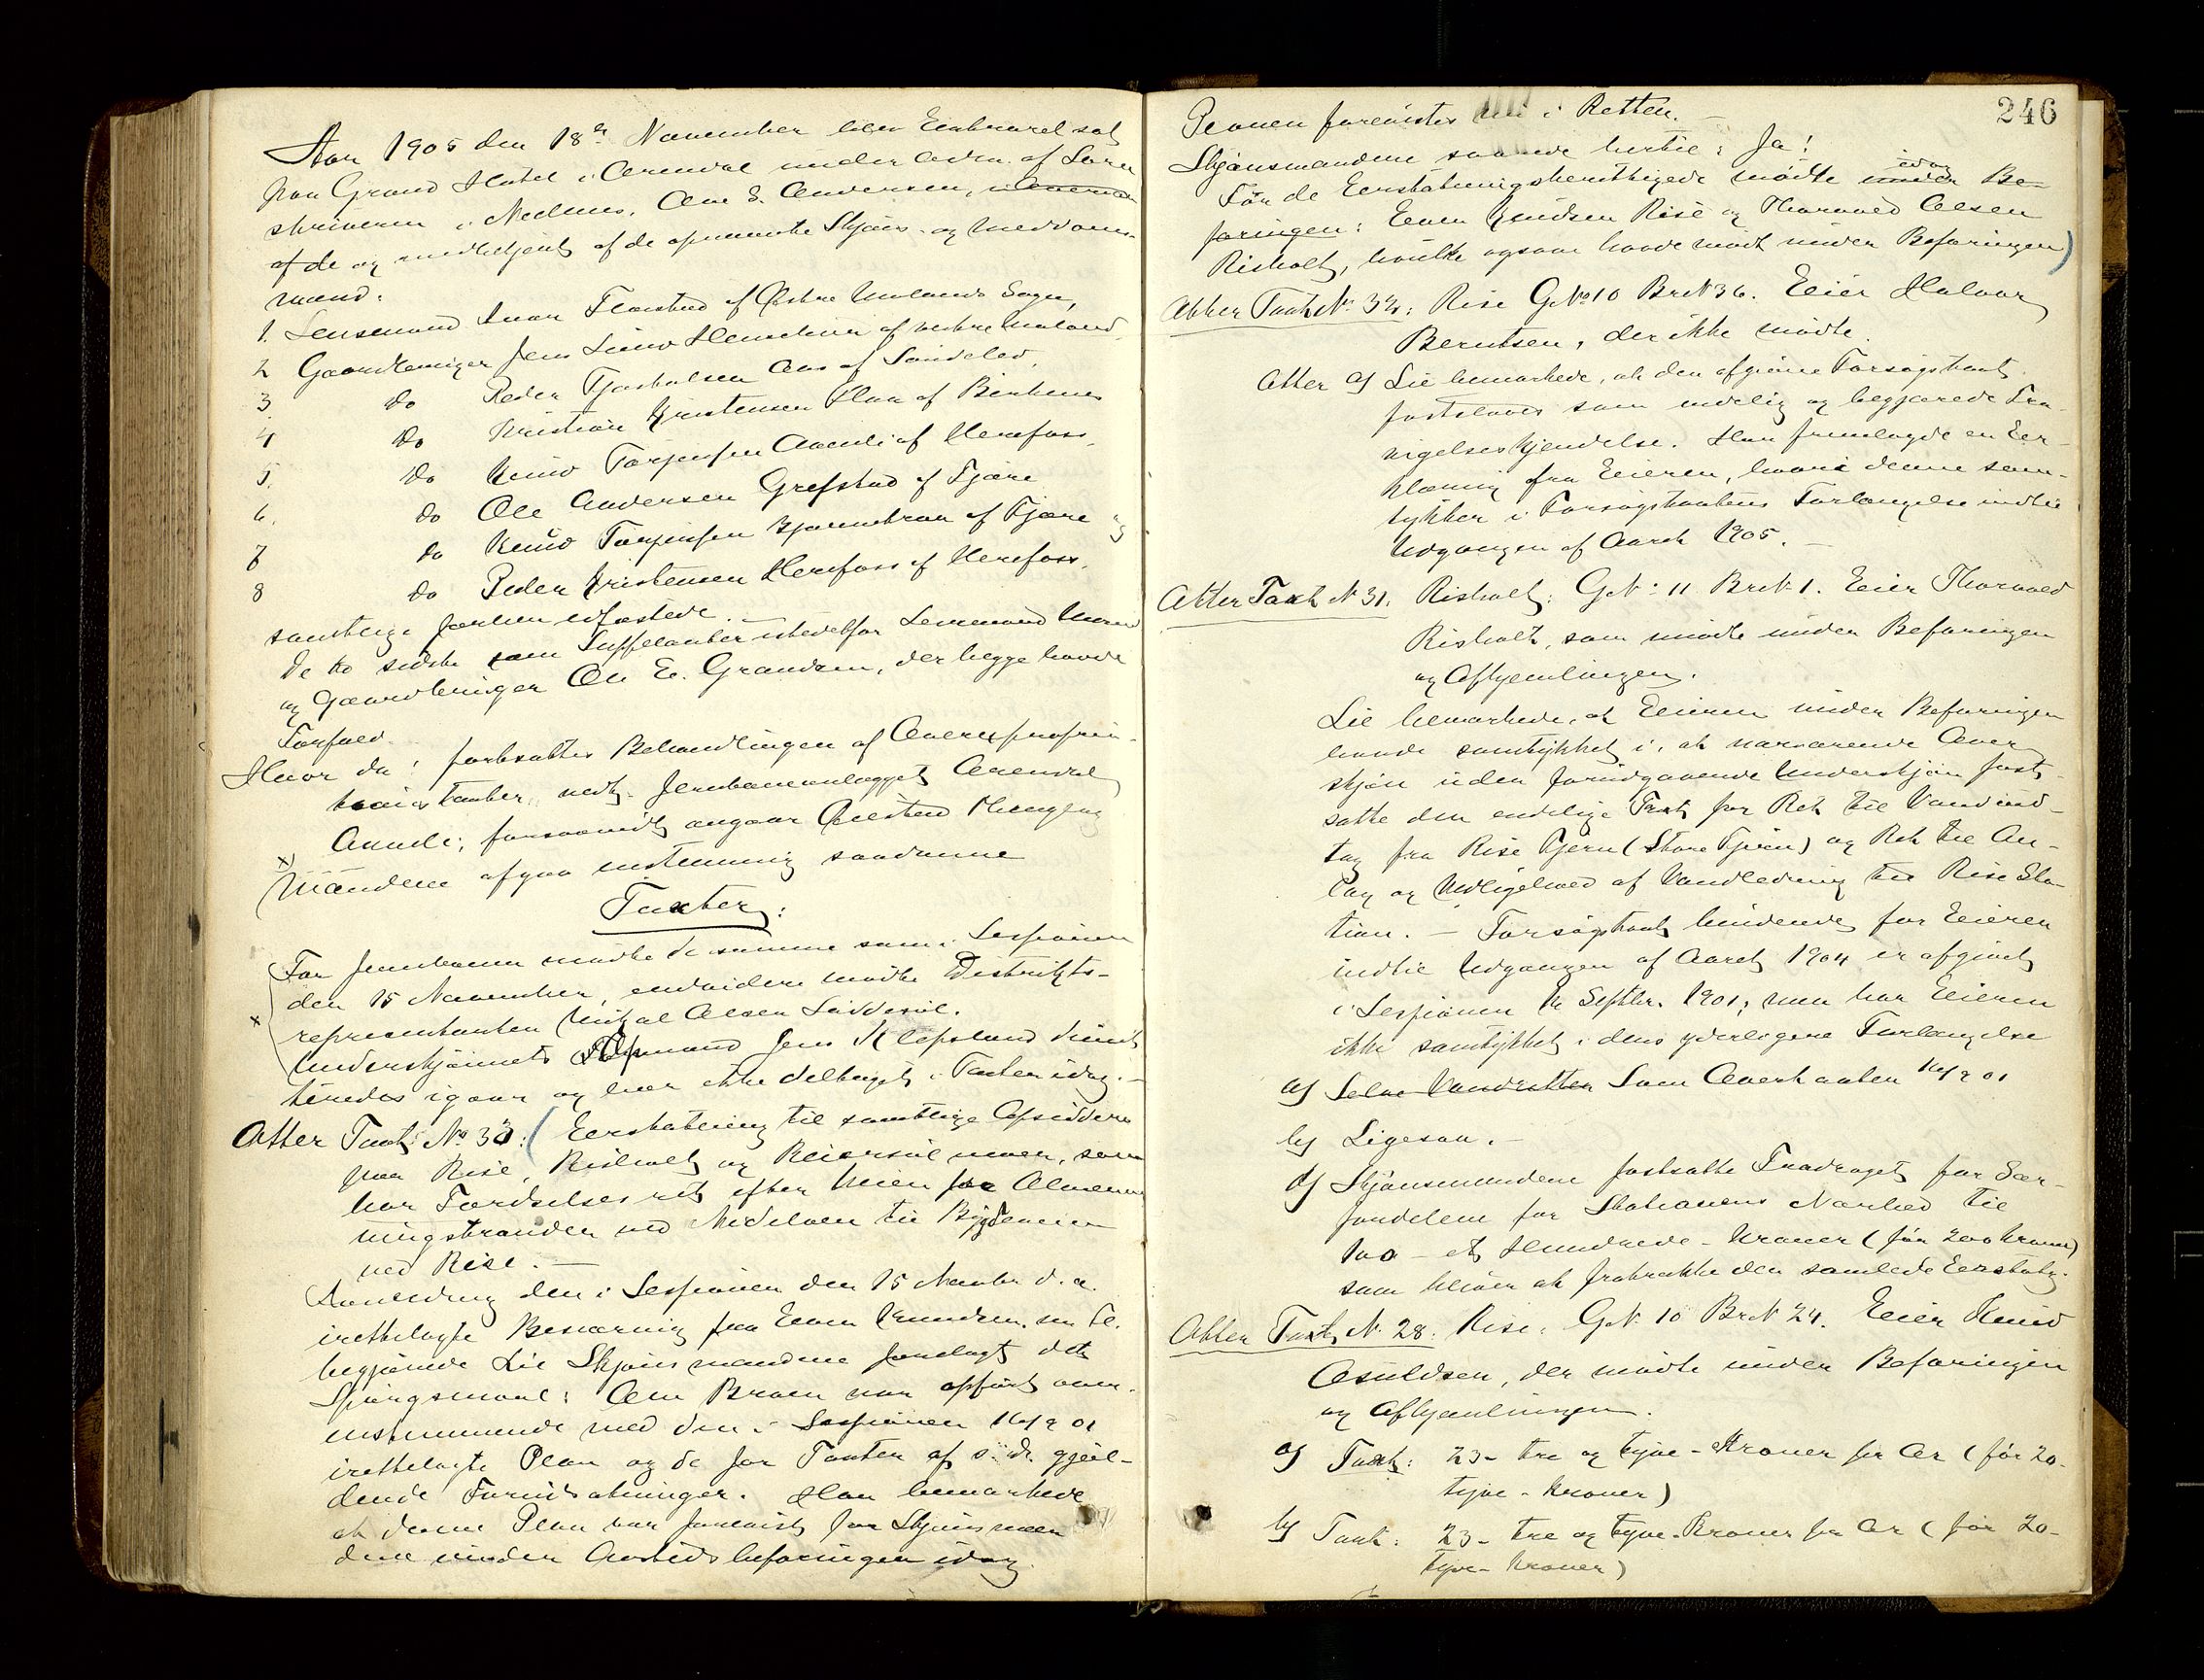 Aar 1905 den 18de November blev Extraret sat
paa Grand Hotel i Arendal under Adm. af Soren
skriveren i Nedenes, Andersen,
af de og medbetjent af de opnævnte Skjøns- og Meddoms-
mænd:
1. Lensmand Florstad af Østre Molands Sogn,
2 Gaardbruger Jens af vestre Moland
3 do Peder Aas af Søndeled,
4 do Kristian Kristensen Flaa af Birkenes
5. do Knud Torjensen Aamli af Herefoss
6. do Ole Andersen Grefstad af Fjære
7 do Knud Torjensen Bjorendran af Fjære og
8 do Peder Kristensen Herefoss af Herefoss.
samtlige forhen edfæstede.
De to sidste som Suppleanter istedetfor Lensmand
og Gaardbruger Ole E. Grandsen, der begge havde
Forfald.
Hvor da! fortsattes Behandlingen af Overexpropria-
tionstaxter vedk. Jernbaneanlægget Arendal
Aamli; forsaavidt angaar Øiestad Thinglag
x) Mændene afgav enstemmig saadanne
Taxter:
For Jernbanen mødte de samme som i Sessionen
den 15 November, endvidere mødte Distrikts-
x repræsentanten Mikal Olsen Løddesøl.
Underskjønnets Opmand Jens Klepsland dimit-
teredes igaar og har ikke deltaget i Taxten idag.
Atter Taxt No 33: (Erstatning til samtlige Opsiddere
paa Rise, Risholt og Reiersøl moen, som
har Færdselsret efter Veien fra Almen-
ningstranden ved Nidelven til Bygdeveien
ved Rise.
Anledning den i Sessionen den 15 Novembr d. a.
irettelagte Besværing fra Even Knudsen m. fl.
begjærede Lie Skjønsmændene forelagt det
Spørgsmaal: Om Broen var opført over-
ensstemmende med den i Sessionen 16/9 01
irettelagte Plan og de for Taxten af s. d. gjæl-
dende Forudsætninger. Han bemærkede
at denne Plan var forevist for Skjønsmæn
dene under Aastedsbefaringen idag
246
Planen forevistes i Retten.
Skjønsmændene svarede hertil: Ja!
For de Erstatningsberettigede mødte under idag Be-
faringen: Even Knudsen Rise og Thorvald Olsen
Risholt, hvilke ogsaa havde mødt under Befaringen)
Atter Taxt No 32: Rise GNo 10 BrN 36. Eier Halvor
Berntsen, der ikke mødte.
Atter a) Lie bemærkede, at den afgivne Forsøgstaxt
fastslaaes som endelig og begjærede Fra-
vigelseskjendelse. Han fremlagde en Er-
klæring fra Eieren, hvori denne sam-
tykker i Forsøgstaxtens Forlængelse indtil
Udgangen af Aaret 1905.
Atter Taxt N 31. Risholt: GN: 11 BrN 1. Eier Thorvald
Risholt, som mødte under Befaringen
og Afhjemlingen.
Lie bemærkede, at Eieren under Befaringen
havde samtykket i, at nærværende Over
skjøn uden forudgaaende Underskjøn fast-
satte den endelige Taxt for Ret til Vandind-
tag fra Rise Tjern (Store Tjern) og Ret til An-
læg og Vedligehold af Vandledning til Rise Sta-
tion. - Forsøgstaxt bindende for Eieren
indtil Udgangen af Aaret 1904 er afgivet
i Sessionen 16 Septbr. 1901; men har Eieren
ikke samtykket i dens yderligere Forlængelse
a) Selve Vandretten Som Overtaxten 16/9 01
b) Ligesaa.
d) Skjønsmændene fastsatte Fradraget for Sær-
fordelene for Stationens Nærhed til
100 - et Hundrede - Kroner (før 200 Kroner)
som bliver at fratrække den samlede Erstatn.
Atter Taxt N. 28: Rise. GN 10 BrN 24. Eier Knud
Osuldsen, der mødte under Befaringen
og Afhjemlingen.
a) Taxt: 23 - tre og tyve - Kroner pr Ar (før 20-
tyve - Kroner)
b) Taxt: 23 - tre og tyve - Kroner pr Ar (før 20-
tyve - Kroner)